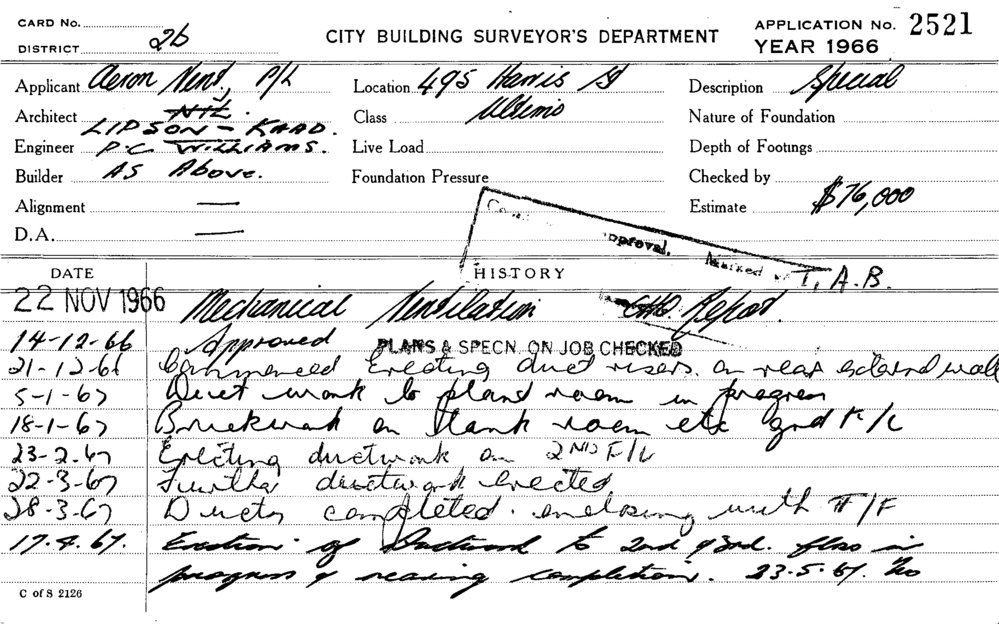 CARD No.
DISTRICT 2b
CITY BUILDING SURVEYOR'S DEPARTMENT
APPLICATION No. 2521
YEAR 1966
Applicant Aeron Vent, P/L
Location 495 Harris St
Description Special
Architect NIL.
LIPSON - KAAD.
Class Ultimo
Nature of Foundation
Engineer P.C. WILLIAMS.
Live Load
Depth of Footings
Builder AS Above.
Foundation Pressure
Checked by
Alignment —
Estimate $76,000
D.A. —
Approval. Marked
T. A. B.
DATE
HISTORY
22 NOV 1966 Mechanical Ventilation CHO. Report.
14-12-66 Approved PLANS & SPECN. ON JOB CHECKED
21-12-66 Commenced Erecting duct risers. on rear external wall
5-1-67 Duct work to plant room in progress
18-1-67 Brickwork on Plant room etc grd F/L
23-2-67 Erecting ductwork on 2ND F/L
22-3-67 Further ductwork Erected
28-3-67 Ducts completed. enclosing with F/F
17.4.67. Erection of Ductwork to 2nd & 3rd. floor in
progress & nearing completion. 23.5.67.
C of S 2126